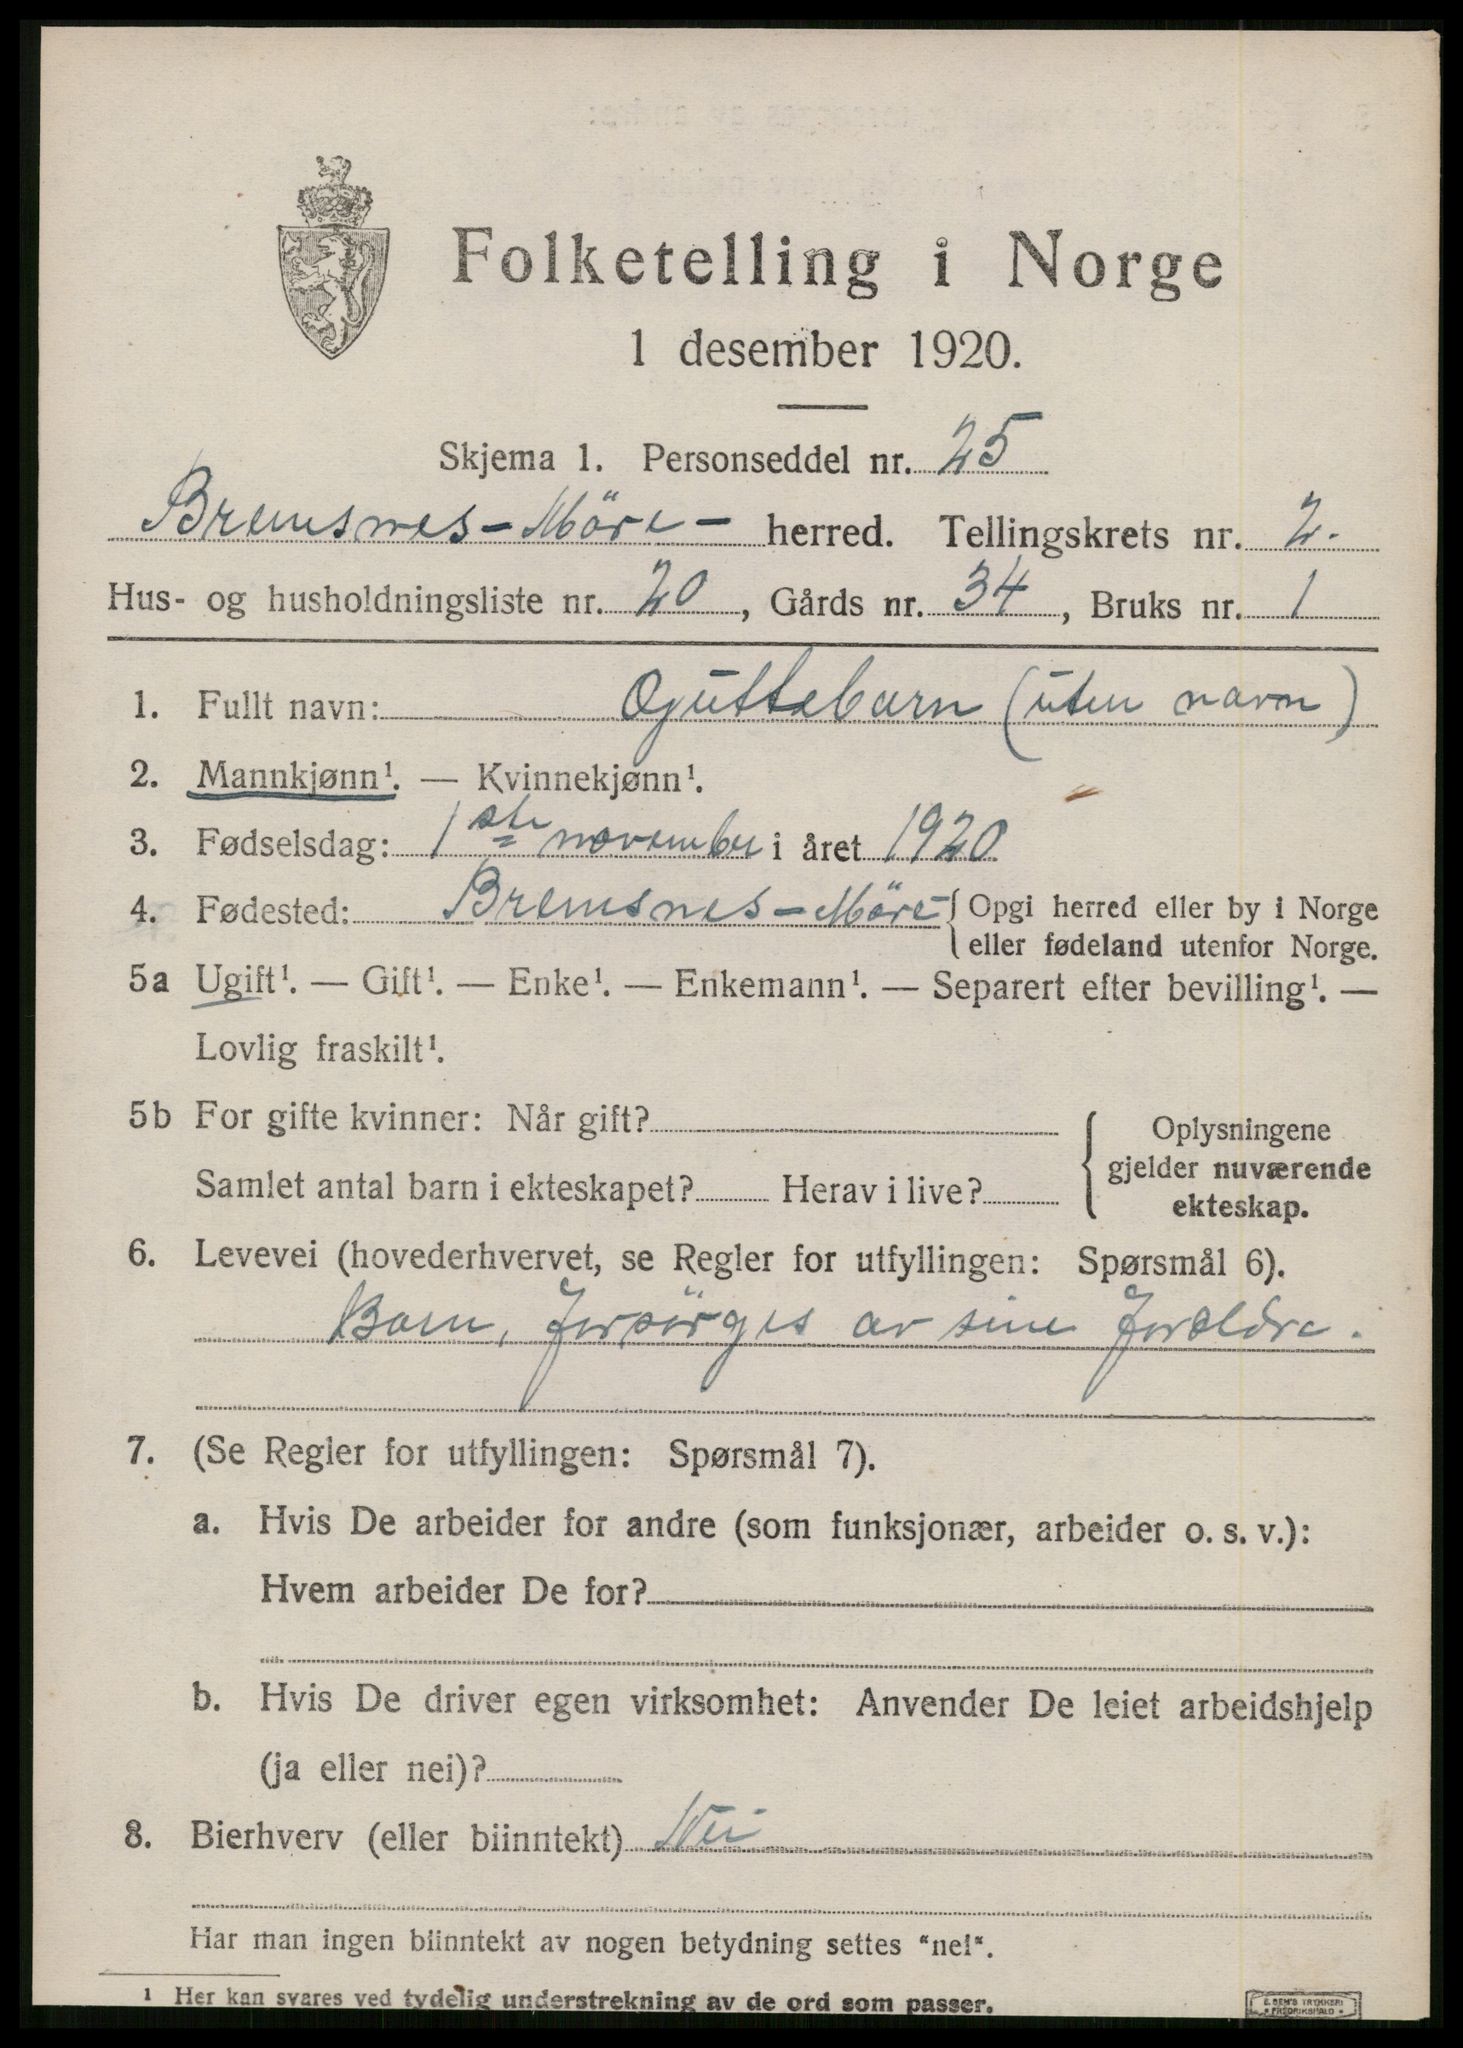 Folketelling i Norge
1 desember 1920.
Skjema 1. Personseddel nr. 25
Bremsnes - Möre - herred. Tellingskrets nr. 2.
Hus- og husholdningsliste nr. 20, Gårds nr. 34, Bruks nr. 1
1. Fullt navn: Guttebarn (uten navn)
2. Mannkjønn¹. — Kvinnekjønn¹.
3. Fødselsdag: 1ste november i året 1920
4. Fødested: Bremsnes - Möre { Opgi herred eller by i Norge
eller fødeland utenfor Norge.
5a Ugift¹. — Gift¹. — Enke¹. — Enkemann¹. — Separert efter bevilling¹. —
Lovlig fraskilt¹.
5b For gifte kvinner: Når gift?
Samlet antal barn i ekteskapet? Herav i live?
Oplysningene
gjelder nuværende
ekteskap.
6. Levevei (hovederhvervet, se Regler for utfyllingen: Spørsmål 6).
Barn, forsörges av sine foreldre.
7. (Se Regler for utfyllingen: Spørsmål 7).
a. Hvis De arbeider for andre (som funksjonær, arbeider o. s. v.):
Hvem arbeider De for?
b. Hvis De driver egen virksomhet: Anvender De leiet arbeidshjelp
(ja eller nei)?
8. Bierhverv (eller biinntekt) Nei
Har man ingen biinntekt av nogen betydning settes "nei".
¹ Her kan svares ved tydelig understrekning av de ord som passer.
E. SEM'S TRYKKERI
FREDRIKSHALD